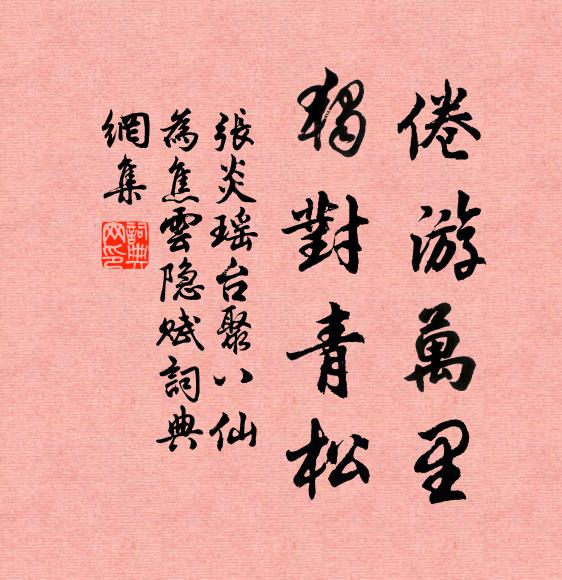 倦游萬里
獨對青松
張炎瑶台聚八仙
為焦雲隐赋詞典
網集
詞典網印